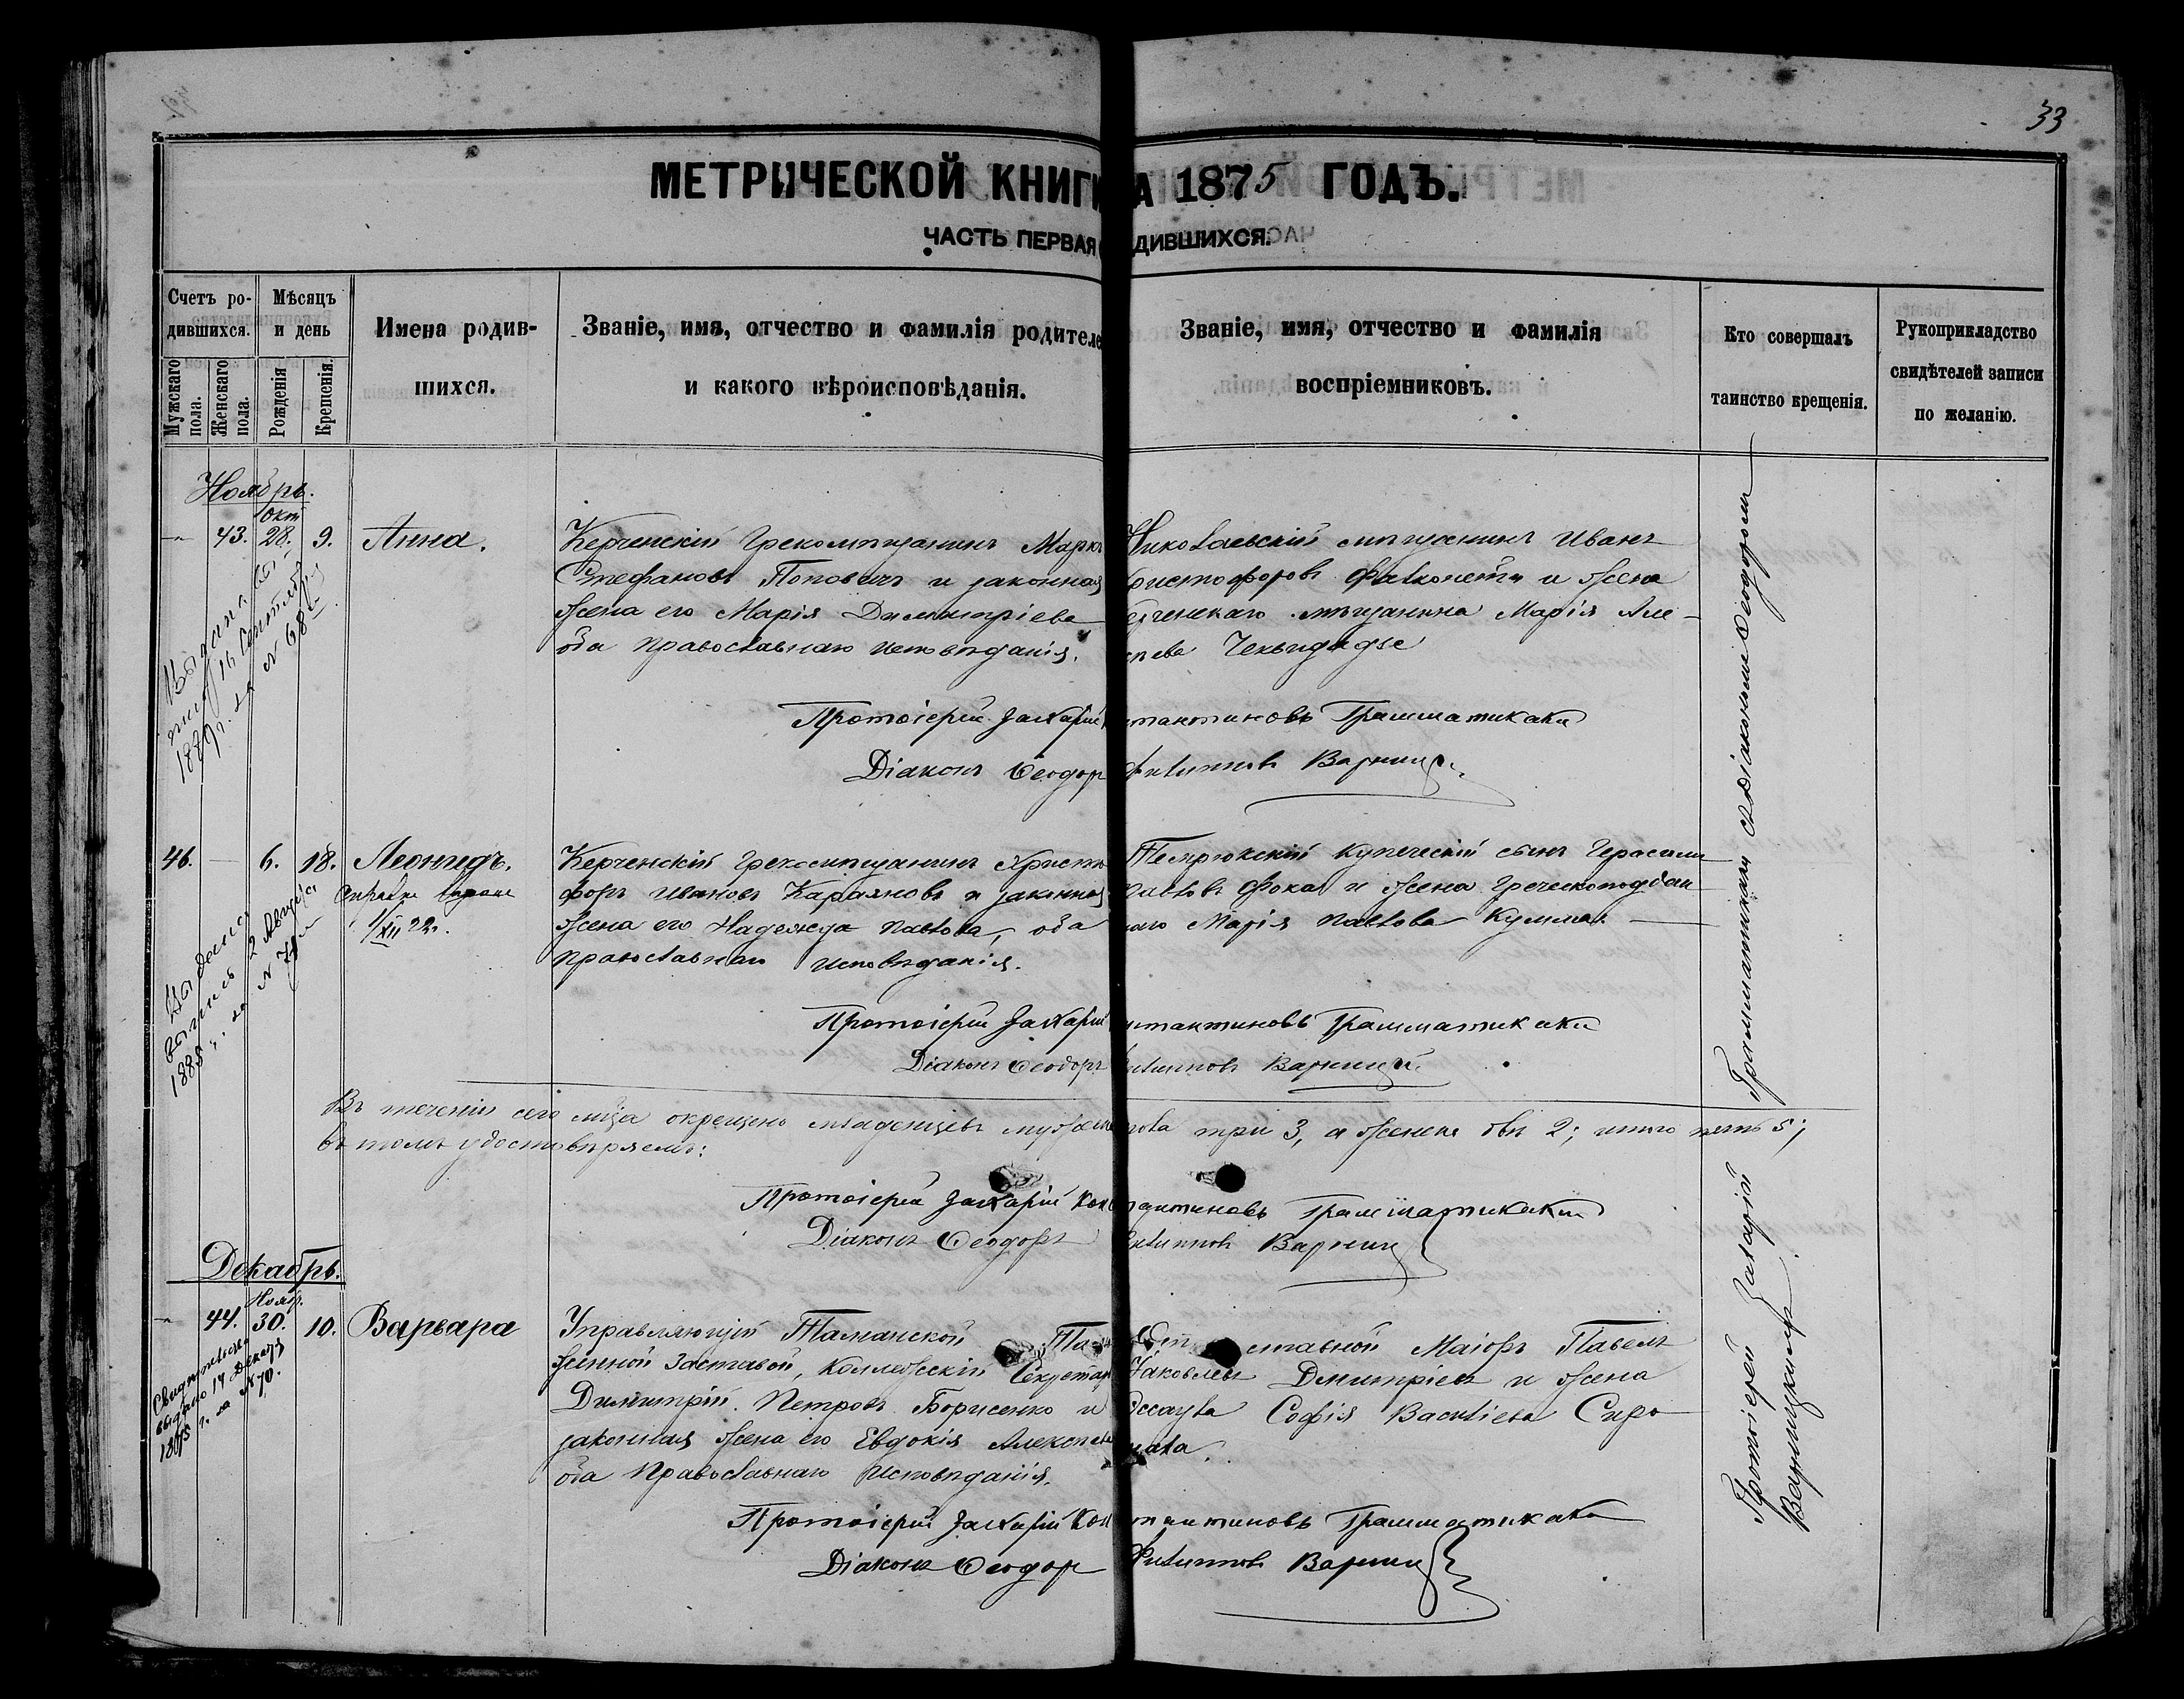 33
МЕТРИЧЕСКОЙ КНИГИ А 1875 ГОДЪ.
ЧАСТЬ ПЕРВАЯ ДИВШИХСЯ.
Счетъ ро-
дившихся.
Мужскаго пола.
Женскаго пола.
Мѣсяцъ
и день
Рожденія
Крещенія.
Имена родив-
шихся.
Званіе, имя, отчество и фамилія родителе
и какого вѣроисповѣданія.
Званіе, имя, отчество и фамилія
воспріемниковъ.
Кто совершалъ
таинство крещенія.
Рукоприкладство
свидѣтелей записи
по желанію.
Ноябрь.
Окт
43. 28. 9. Анна.
Керченскій Грекомѣщанинъ Маркъ
Стефановъ Поповичъ и законная
жена его Марія Димитріева
оба православнаго исповѣданія.
Николаевскій мѣщанинъ Иванъ
ристофоровъ и жена
рченскаго мѣщанина Марія Але-
ѣева
16 Сентября
№ 68
Протоіерей Захарій
тантиновъ Грамматикаки
Діаконъ Ѳеодоръ
Филипповъ Варницкій
46. — 6. 18. Леонидъ.
1/XII 22.
Керченскій Грекомѣщанинъ Христо
форъ Ивановъ Караяновъ и законная
жена его Надежда Павлова, оба
православнаго исповѣданія.
Темрюкскій купеческій сынъ Герасимъ
Павловъ Фока и жена Греческоподдан
наго Марія Павлова
2 Августа
Протоіерей Захарій
нстантиновъ Грамматикаки
Діаконъ Ѳеодоръ
Филипповъ Варницкій
Въ теченіи сего мѣсяца окрещено младенцевъ мужеска
пола три 3, а женска двѣ 2; итого пять 5;
въ томъ удостовѣряемъ:
Протоіерей Захарій Конс
тантиновъ Грамматикаки
Діаконъ Ѳеодоръ
Филипповъ Варницкій
Декабрь.
Нояб.
44. 30. 10. Варвара
Управляющій Таманской Та-
женной Заставой, Коллежскій Секретарь
Димитрій Петровъ Борисенко и
законная жена его Евдокія Алексѣева
оба Православнаго Исповѣданія.
ставной Маіоръ Павелъ
Яковлевъ Дмитріевъ и жена
Эсаула Софія Васильева Сиро
мала.
Свидѣтельство
выдано 17 Декабря
1875 г. за № 70.
Протоіерей Захарій Кон
тантиновъ Грамматикаки
Діаконъ Ѳеодоръ
Филипповъ Варницкій
Протоіерей Захарій Грамматикаки съ Діакономъ Ѳеодоромъ
Варницкимъ.